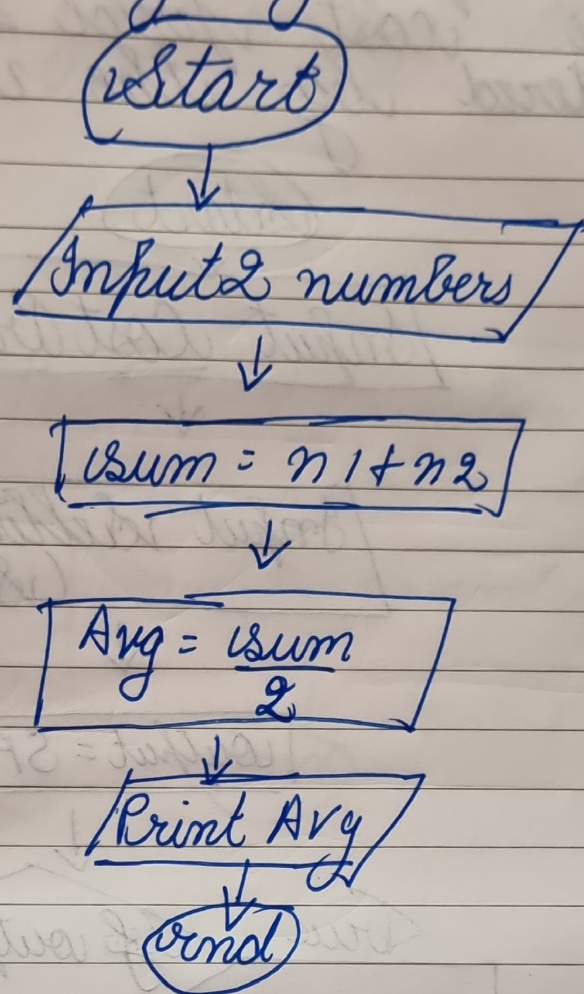 Start
Input 2 numbers
sum = n1+n2
Avg = sum
2
Print Avg
end